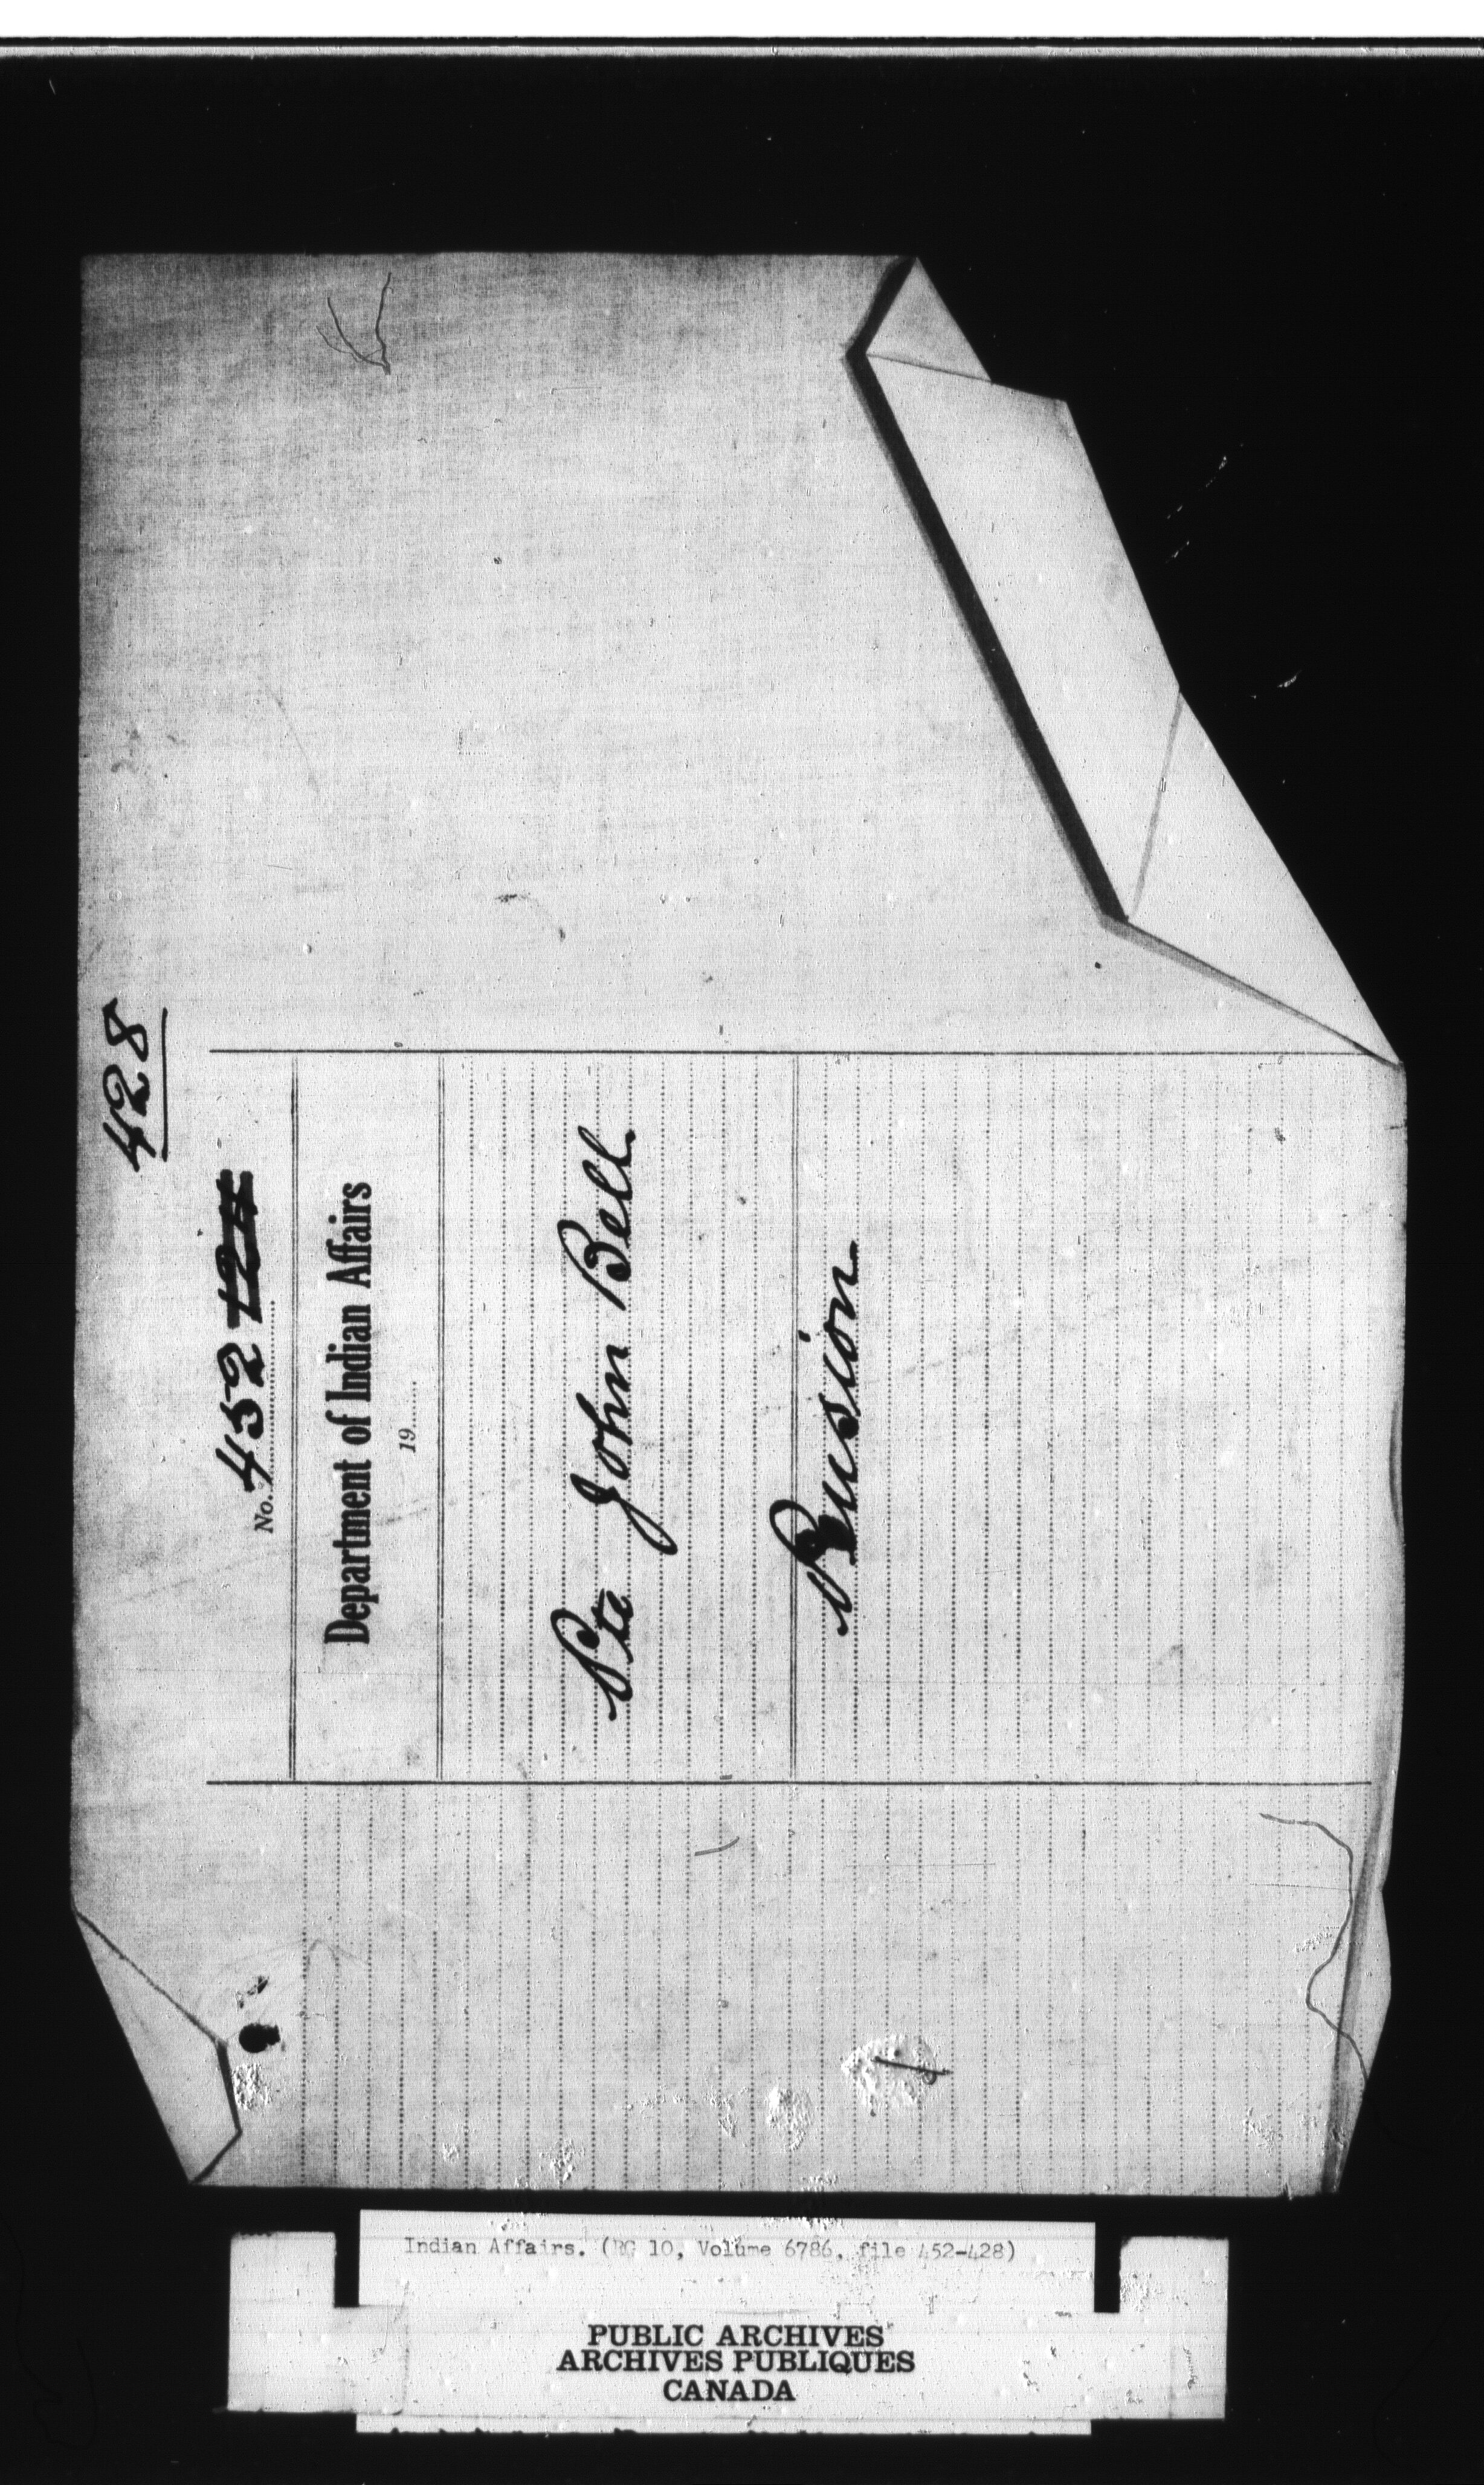 428
No. 452 124
Department of Indian Affairs
19......
Pte John Bell
Pension
Indian Affairs. (RG 10, Volume 6786, file 452-428)
PUBLIC ARCHIVES
ARCHIVES PUBLIQUES
CANADA